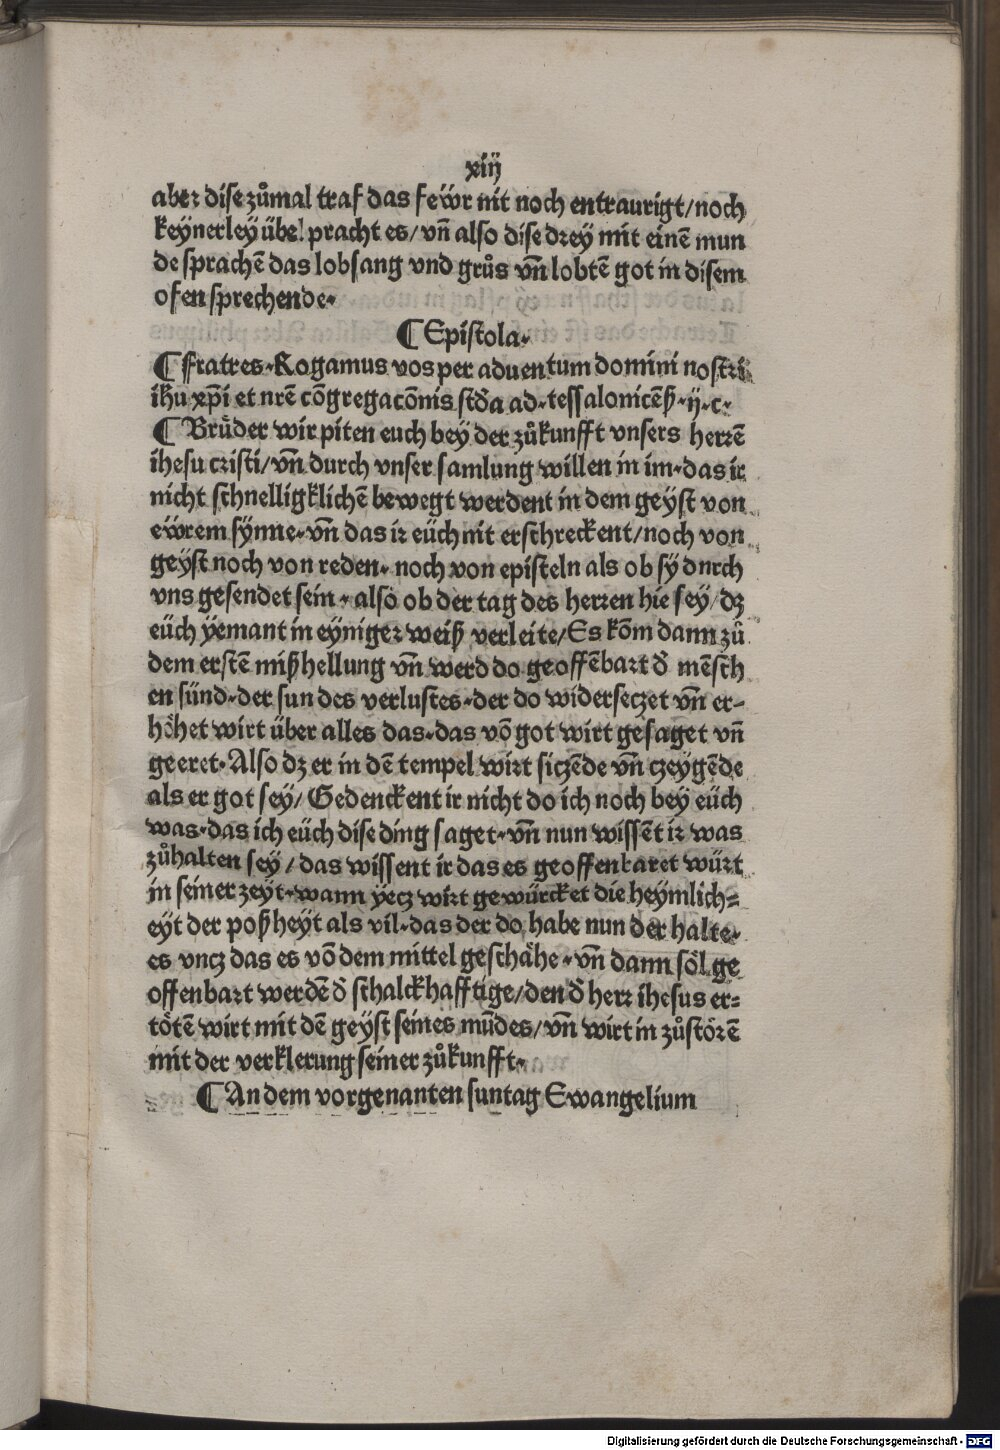 xiij
aber dise zůmal traf das feẅr nit noch entraurigt/noch
keÿnerleÿ übel pracht es/vn̄ also dise dreÿ mit einē mun
de sprachē das lobsang vnd grůs vn̄ lobtē got in disem
ofen sprechende.
¶ Epistola.
¶ Fratres. Rogamus vos per aduentum domini nostri
ihu xp̄i et nrē cōgregacōnis sc̄da ad. tessalonicēß. ij. c.
¶ Brüder wir piten euch beÿ der zůkunfft vnsers herrē
ihesu cristi/vn̄ durch vnser samlung willen in im. das ir
nicht schnelligklichē bewegt werdent in dem geÿst von
eẅrem sÿnne. vn̄ das ir eüch nit erschreckent/noch von
geÿst noch von reden. noch von episteln als ob sÿ durch
vns gesendet sein. also ob der tag des herren hie seÿ/dz
eüch ÿemant in eÿniger weiß verleite/Es kōm dann zů
dem erstē mißhellung vn̄ werd do geoffēbart d̄ mēsch
en sünd. der sun des verlustes. der do widerseczet vn̄ er-
höhet wirt über alles das. das vō got wirt gesaget vn̄
geeret. Also dz er in dē tempel wirt siczēde vn̄ czeÿgēde
als er got seÿ/Gedenckent ir nicht do ich noch beÿ eüch
was. das ich eüch dise ding saget. vn̄ nun wissēt ir was
zůhalten seÿ/das wissent ir das es geoffenbaret würt
in seiner zeÿt. wann ÿecz wirt gewürcket die heÿmlich=
eÿt der poßheÿt als vil. das der do habe nun der halte.
es vncz das es vō dem mittel geschähe. vn̄ dann söl ge
offenbart werdē d̄ schalckhafftige/den d̄ herr ihesus er=
tötē wirt mit dē geÿst seines mūdes/vn̄ wirt in zůstörē
mit der verklerung seiner zůkunfft.
¶ An dem vorgenanten suntag Ewangelium
Digitalisierung gefördert durch die Deutsche Forschungsgemeinschaft - DFG